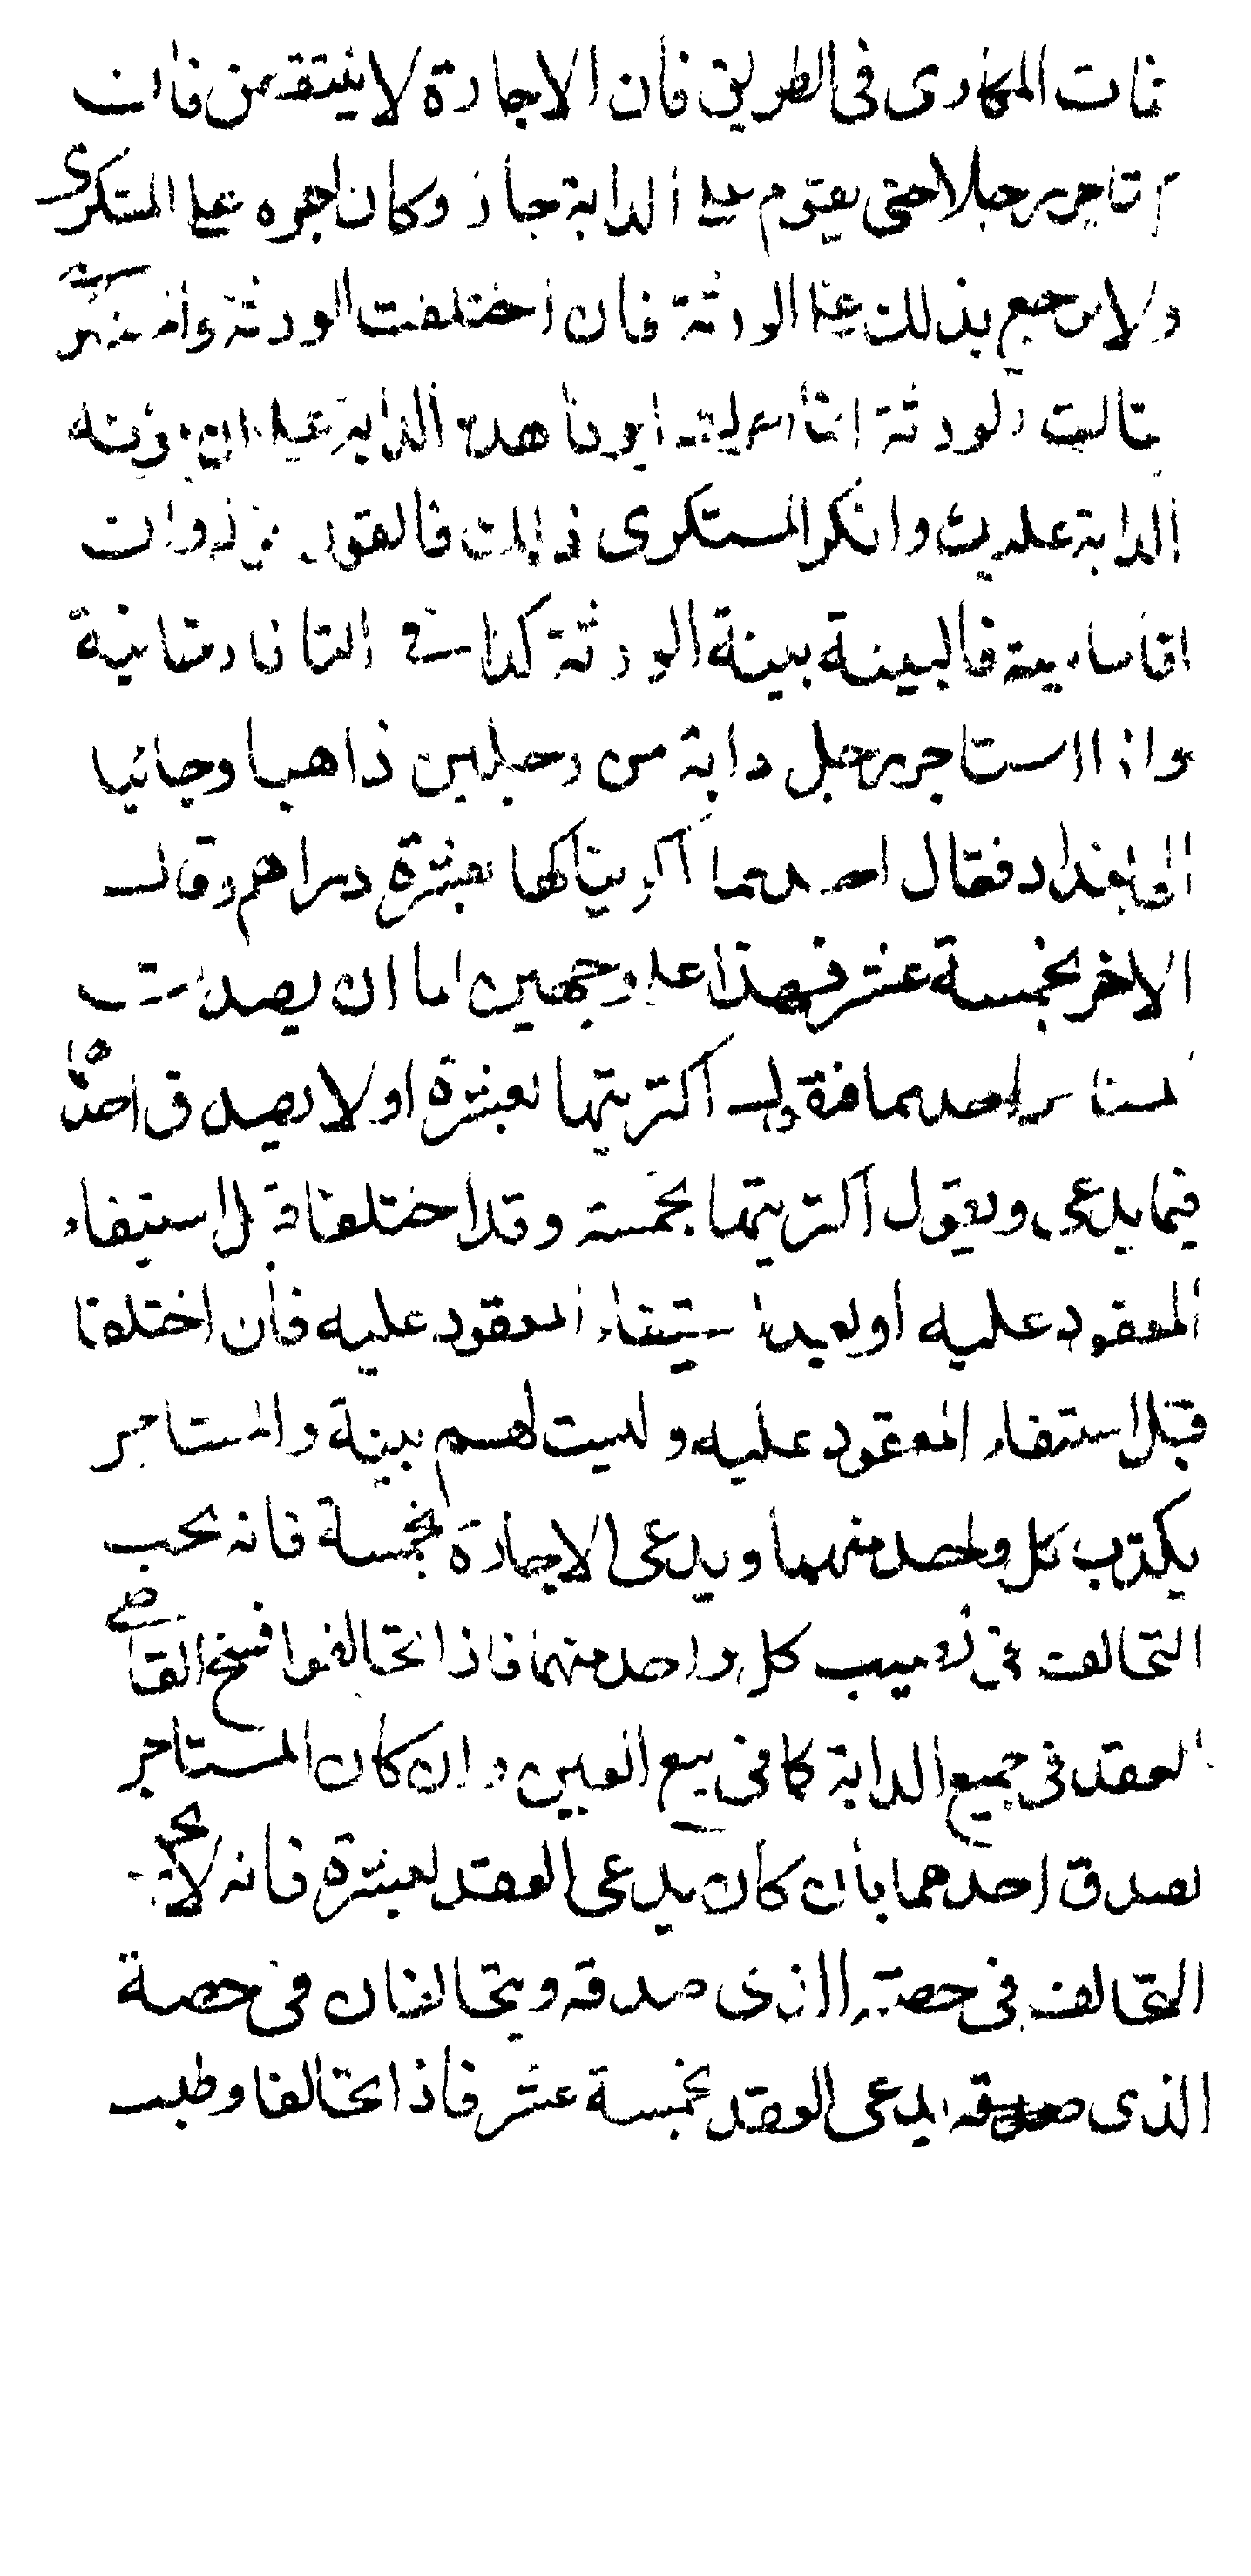 فمات المكارى فى الطريق فان الاجارة لا ينتقض فان
استاجر رجلا حتى يقوم على الدابة جاز وكان اجره على المستكرى
ولا يرجع بذلك على الورثة فان اختلفت الورثة والمستكرى
قالت الورثة انما ابونا هذه الدابة على ان مؤنة
الدابة عليك وانكر المستكرى ذلك فالقول قوله وان
اقاما بينة فالبينة بينة الورثة كذا فى التاتارخانية
واذا استاجر رجل دابة من رجلين ذاهبا وجائيا
الى بغداد فقال احدهما اكريناكها بعشرة دراهم وقال
الاخر بخمسة عشر فهذا على وجهين اما ان يصدق
المستاجر احدهما فيقول اكتريتها بعشرة او لا يصدق احدا
فيما يدعى ويقول اكتريتها بخمسة وقد اختلفا قبل استيفاء
المعقود عليه او بعد استيفاء المعقود عليه فان اختلفا
قبل استيفاء المعقود عليه وليست لهم بينة والمستاجر
يكذب كل واحد منهما ويدعى الاجارة بخمسة فانه يجب
التحالف فى نصيب كل واحد منهما فاذا تحالفوا فسخ القاضى
العقد فى جميع الدابة كما فى بيع العين وان كان المستاجر
يصدق احدهما بان كان يدعى العقد بعشرة فانه لا يجرى
التحالف فى حصة الذى صدقه ويتحالفان فى حصة
الذى يدعى العقد بخمسة عشر فاذا تحالفا وطلب